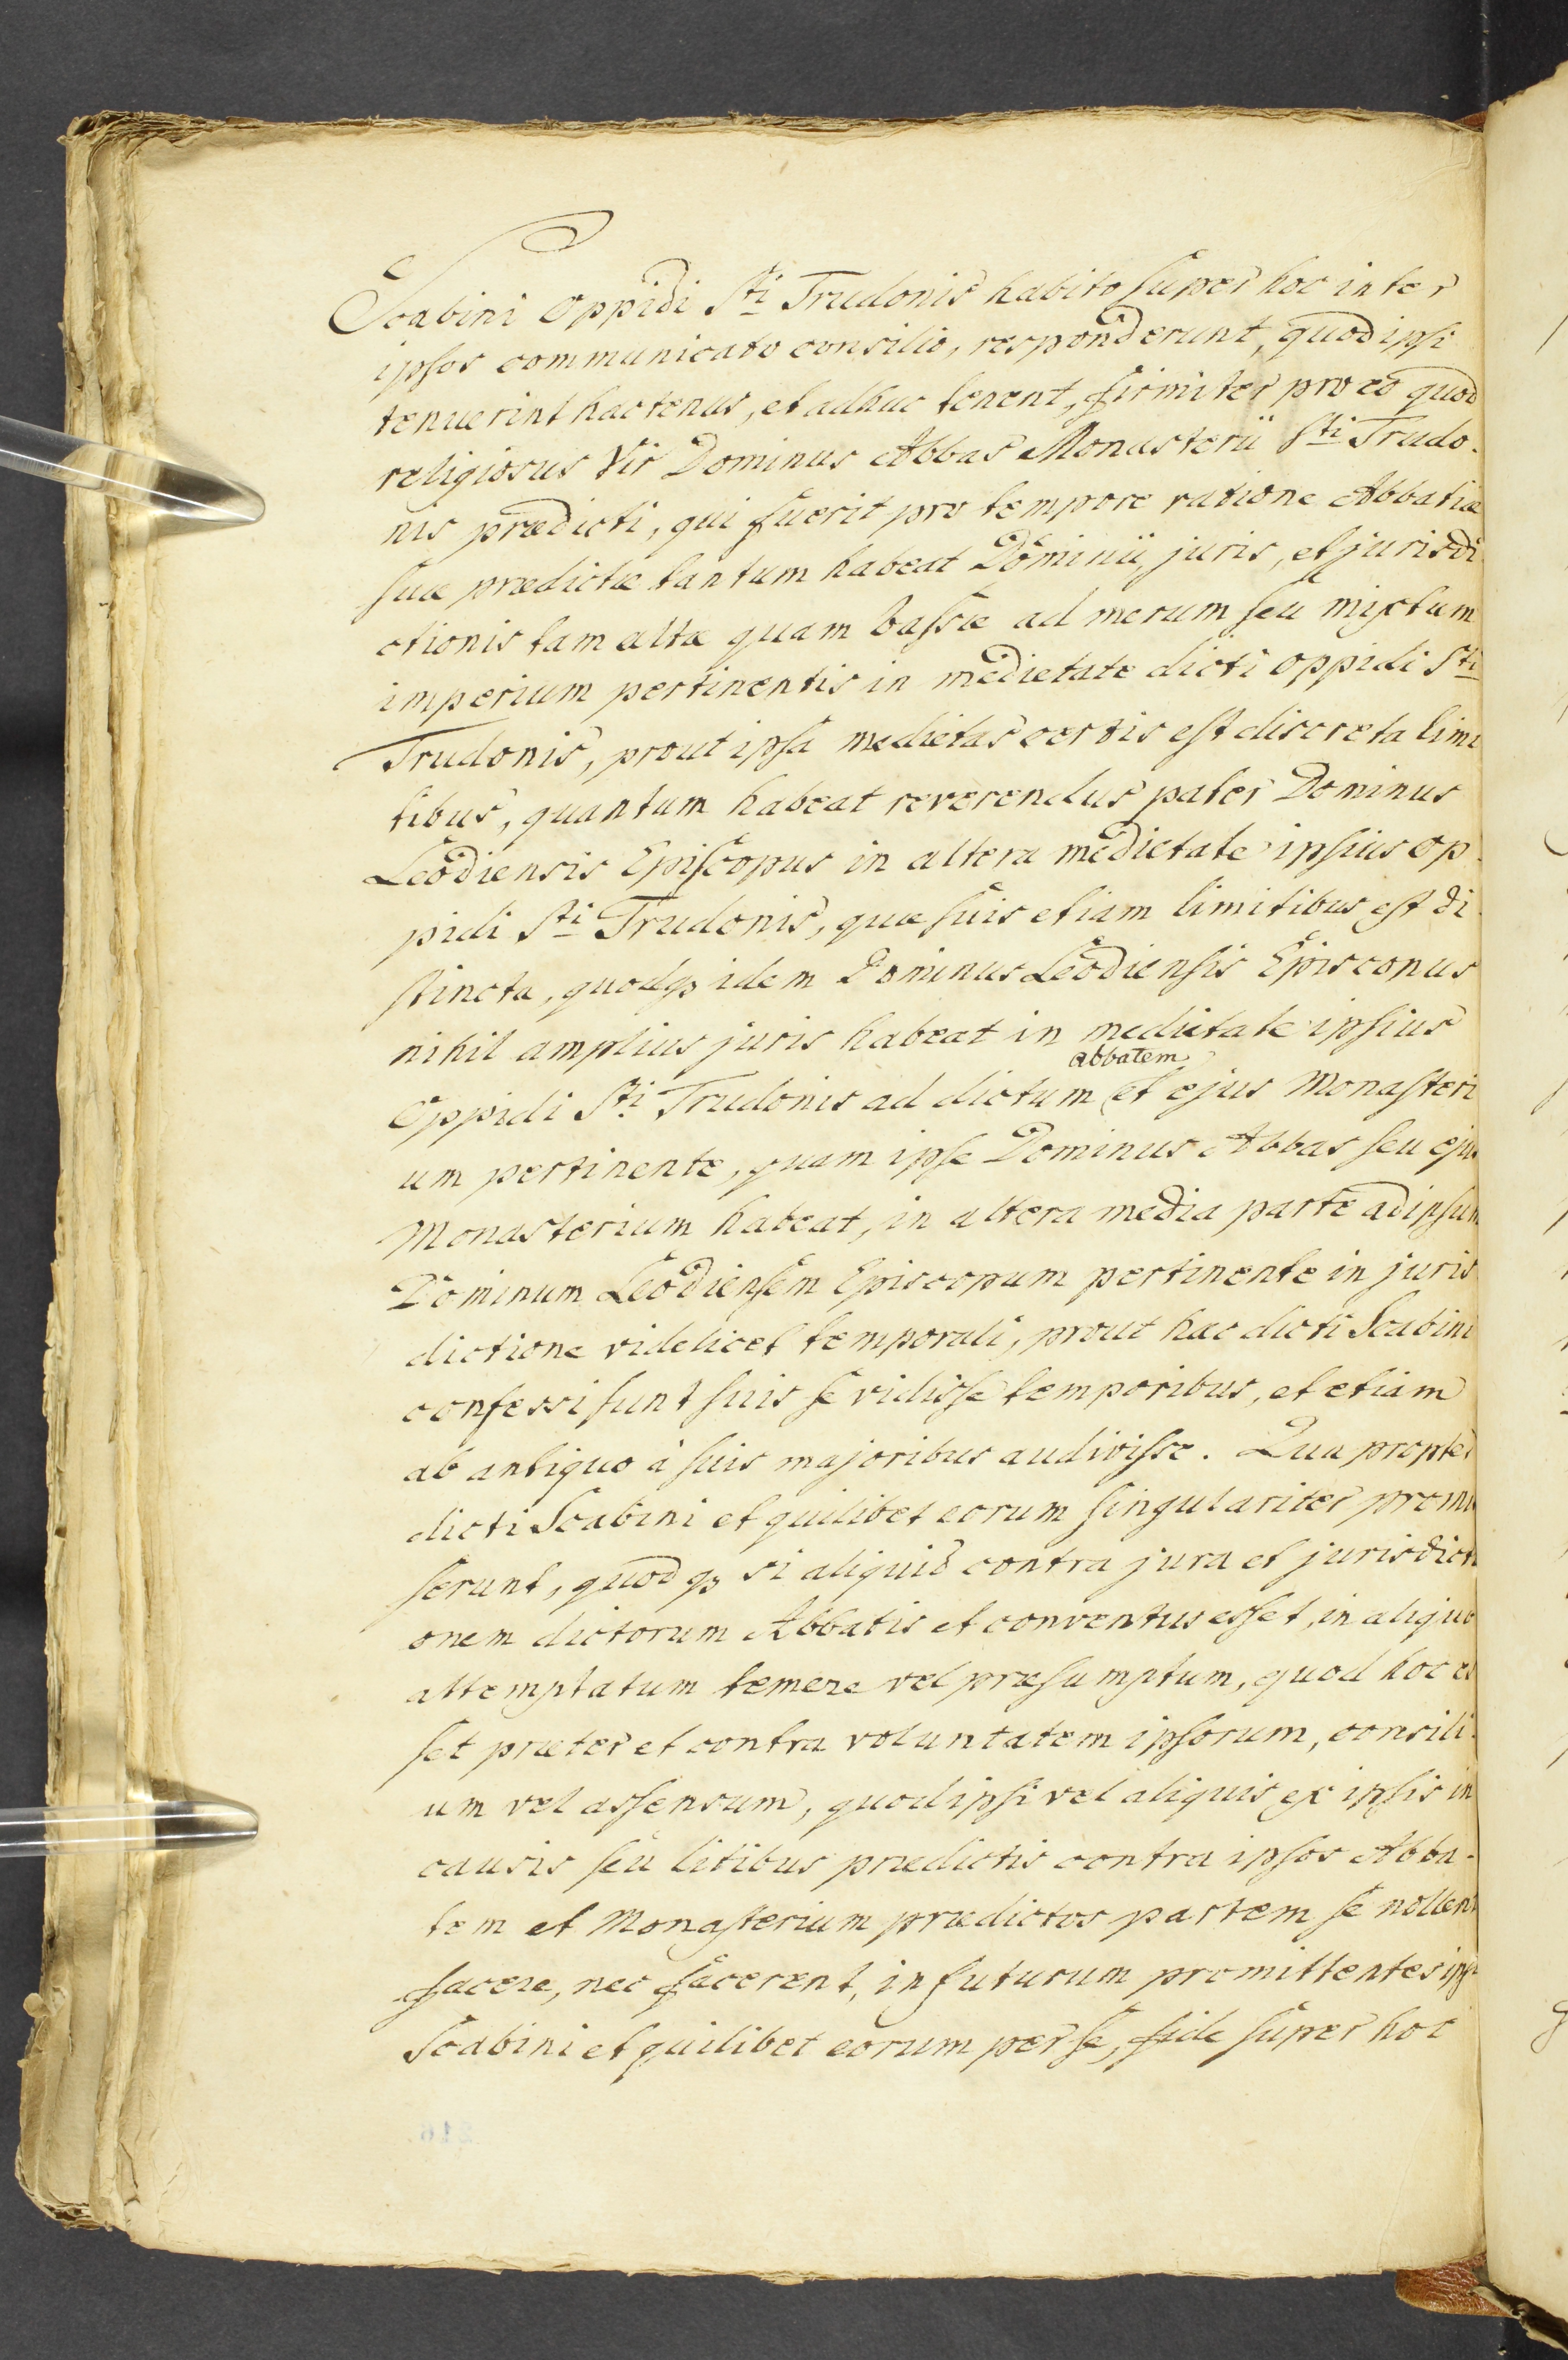 Scabini Oppidi Sti Trudonis habito super hoc inter
ipsos communicato consilio, responderunt, quod ipsi
tenuerint hactenus, et adhuc tenent, firmiter pro eo quod
religiosus Vir Dominus Abbas Monasterii Sti Trudo-
nis prædicti, qui fuerit pro tempore ratione Abbatiæ
suæ prædictæ tantum habeat Dominii, juris, et jurisdi
ctionis tam altæ quam bassæ ad merum seu mixtum
imperium pertinentis in medietate dicti oppidi Sti
Trudonis, prout ipsa medietas certis est discreta limi
tibus, quantum habeat reverendus pater Dominus
Leodiensis Episcopus in altera medietate ipsius op
pidi Sti Trudonis, quæ suis etiam limitibus est di
stincta, quodq3 idem Dominus Leodiensis Episcopus
nihil amplius juris habeat in medietate ipsius
abbatem
Oppidi Sti Trudonis ad dictum et ejus Monasteri
um pertinente, quam ipse Dominus Abbas seu ejus
Monasterium habeat, in altera media parte ad ipsum
Dominum Leodiensem Episcopum pertinente in juris
dictione videlicet temporali, prout hac dicti Scabini
confessi sunt suis se vidisse temporibus, et etiam
ab antiquo à suis majoribus audivisse. Qua propter
dicti Scabini et quilibet eorum singulariter promi
serunt, quod q3 si aliquid contra jura et jurisdicti
onem dictorum Abbatis et conventus esset, in aliquo
attemptatum temere vel præsumptum, quod hoc es
set præter et contra voluntatem ipsorum, consili-
um vel assensum, quod ipsi vel aliquis ex ipsis in
causis seu litibus prædictis contra ipsos Abba-
tem et Monasterium prædictos partem se nollent
facere, nec facerent, in futurum promittentes ipsi
Scabini et quilibet eorum per se, fide super hoc